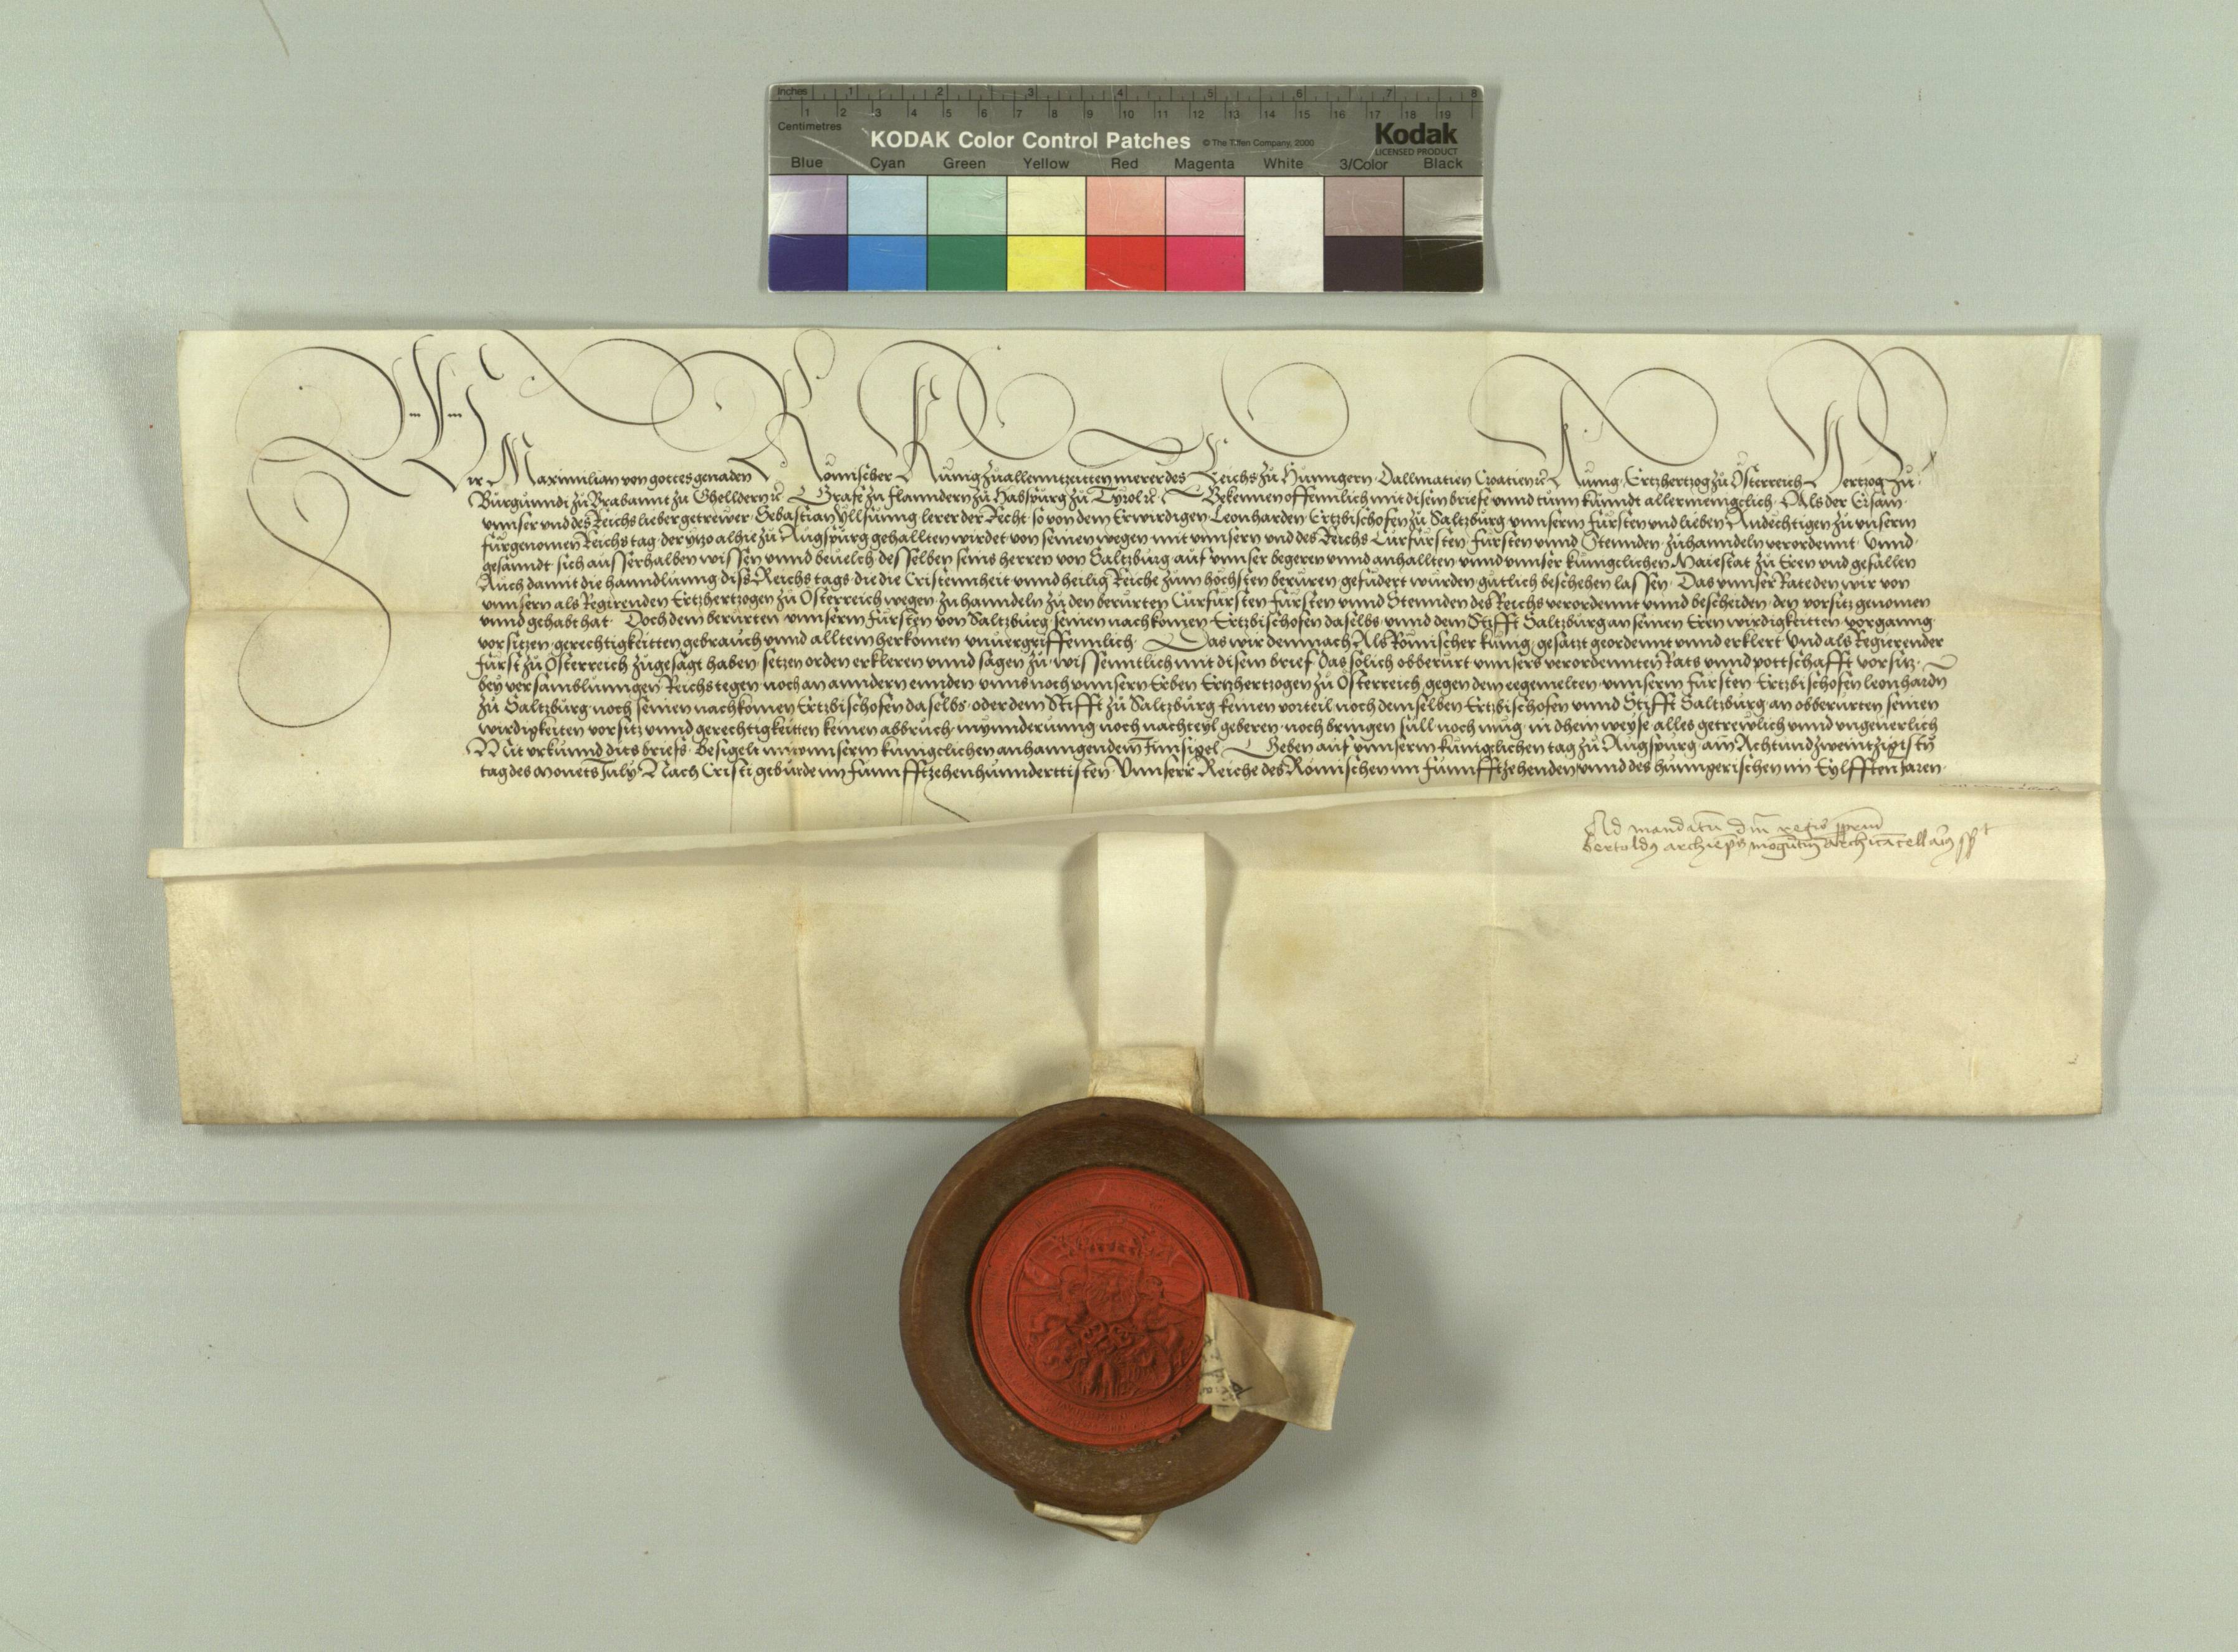 Inches 1 2 3 4 5 6 7 8
1 2 3 4 5 6 7 8 9 10 11 12 13 14 15 16 17 18 19
Centimetres
KODAK Color Control Patches © The Tiffen Company, 2000 Kodak
LICENSED PRODUCT
Blue Cyan Green Yellow Red Magenta White 3/Color Black
Wir Maximilian von gottes genaden Römischer Kunig zuallenntzeitten merer des Reichs zu Hunngern Dallmatien Croatien ꝛc Kunig Ertzhertzog zu Österreich Hertzog zu
Burgunndi zu Brabannt zu Ghelldern ꝛc Grafe zu flanndern zu Habspurg zu Tyrol ꝛc Bekennen offennlich mit disem briefe vnnd tunn kunndt allermenigclich Als der Ersam
vnnser vnd des Reichs lieber getrewer Sebastian Yllsunng lerer der Recht so von dem Erwirdigen Leonharden Ertzbischofen zu Saltzburg vnnserm fursten vnd lieben Andechtigen zu vnserm
furgenomen Reichs tag der ytzo alhie zu Augspurg gehallten wirdet von seinen wegen mit vnnsern vnd des Reichs Curfursten fursten vnnd Stennden zuhanndeln verordennt vnnd
gesanndt sich ausserhalben wissen vnnd beuelch desselben seins herren von Saltzburg auf vnnser begeren vnnd anhallten vnnd vnnser kunigclichen Maiestat zu Eren vnd gefallen
Auch damit die hanndlunng diss Reichs tags die die Cristennheit vnnd heilig Reiche zum höchsten beruren gefudert wurden gutlich beschehen lassen Das vnnser Rate den wir von
vnnsern als Regirenden Ertzhertzogen zu Österreich wegen zuhanndeln zu den berurten Curfursten fursten vnnd Stennden des Reichs verordennt vnnd bescheiden den vorsitz genomen
vnnd gehabt hat Doch dem berurten vnnserm fursten von Saltzburg seinen nachkomen Ertzbischofen daselbs vnnd dem Stifft Saltzburg an seinen Eren wirdigkeitten vorganng
vorsitzen gerechtigkeitten gebrauch vnnd alltem herkomen vnuergriffennlich Das wir demnach Als Römischer kunig gesatzt geordennt vnnd erklert Vnd als Regirender
furst zu Österreich zugesagt haben setzen orden erkleren vnnd sagen zu wissenntlich mit disem brief Das solich obberurt vnnsers verordennten Rats vnnd pottschafft vorsitz
bey versamblunngen Reichstegen noch an anndern ennden vnns noch vnnsern Erben Ertzhertzogen zu Österreich gegen dem eegemelten vnnserm fursten Ertzbischofen leonhardn
zu Saltzburg noch seinen nachkomen Ertzbischofen daselbs oder dem Stifft zu Saltzburg keinen vorteil noch demselben Ertzbischofen vnnd Stifft Saltzburg an obberurten seinen
wirdigkeiten vorsitz vnnd gerechtigkeitten keinen abbruch mynnderunng noch nachteyl geberen noch bringen sull noch mug in dhein weyse alles getrewlich vnnd vngeuerlich
Mit vrkunnd dits briefs Besigelt mit vnnserm kunigclichen anhanngendem Innsigel Geben auf vnnserm kuniglichen tag zu Augspurg am Achtundzweintzigisten
tag des monets July Nach Cristi geburde im funnfftzehenhunnderttisten Vnnserr Reiche des Römischen im funnfftzehenden vnnd des hunngerischen im Eylfften Jaren
Ad mandatū dm̄ regis ꝓpriū
bertoldꝰ archiep̄s mogūtin̄ archicācellariꝰ sp̄t